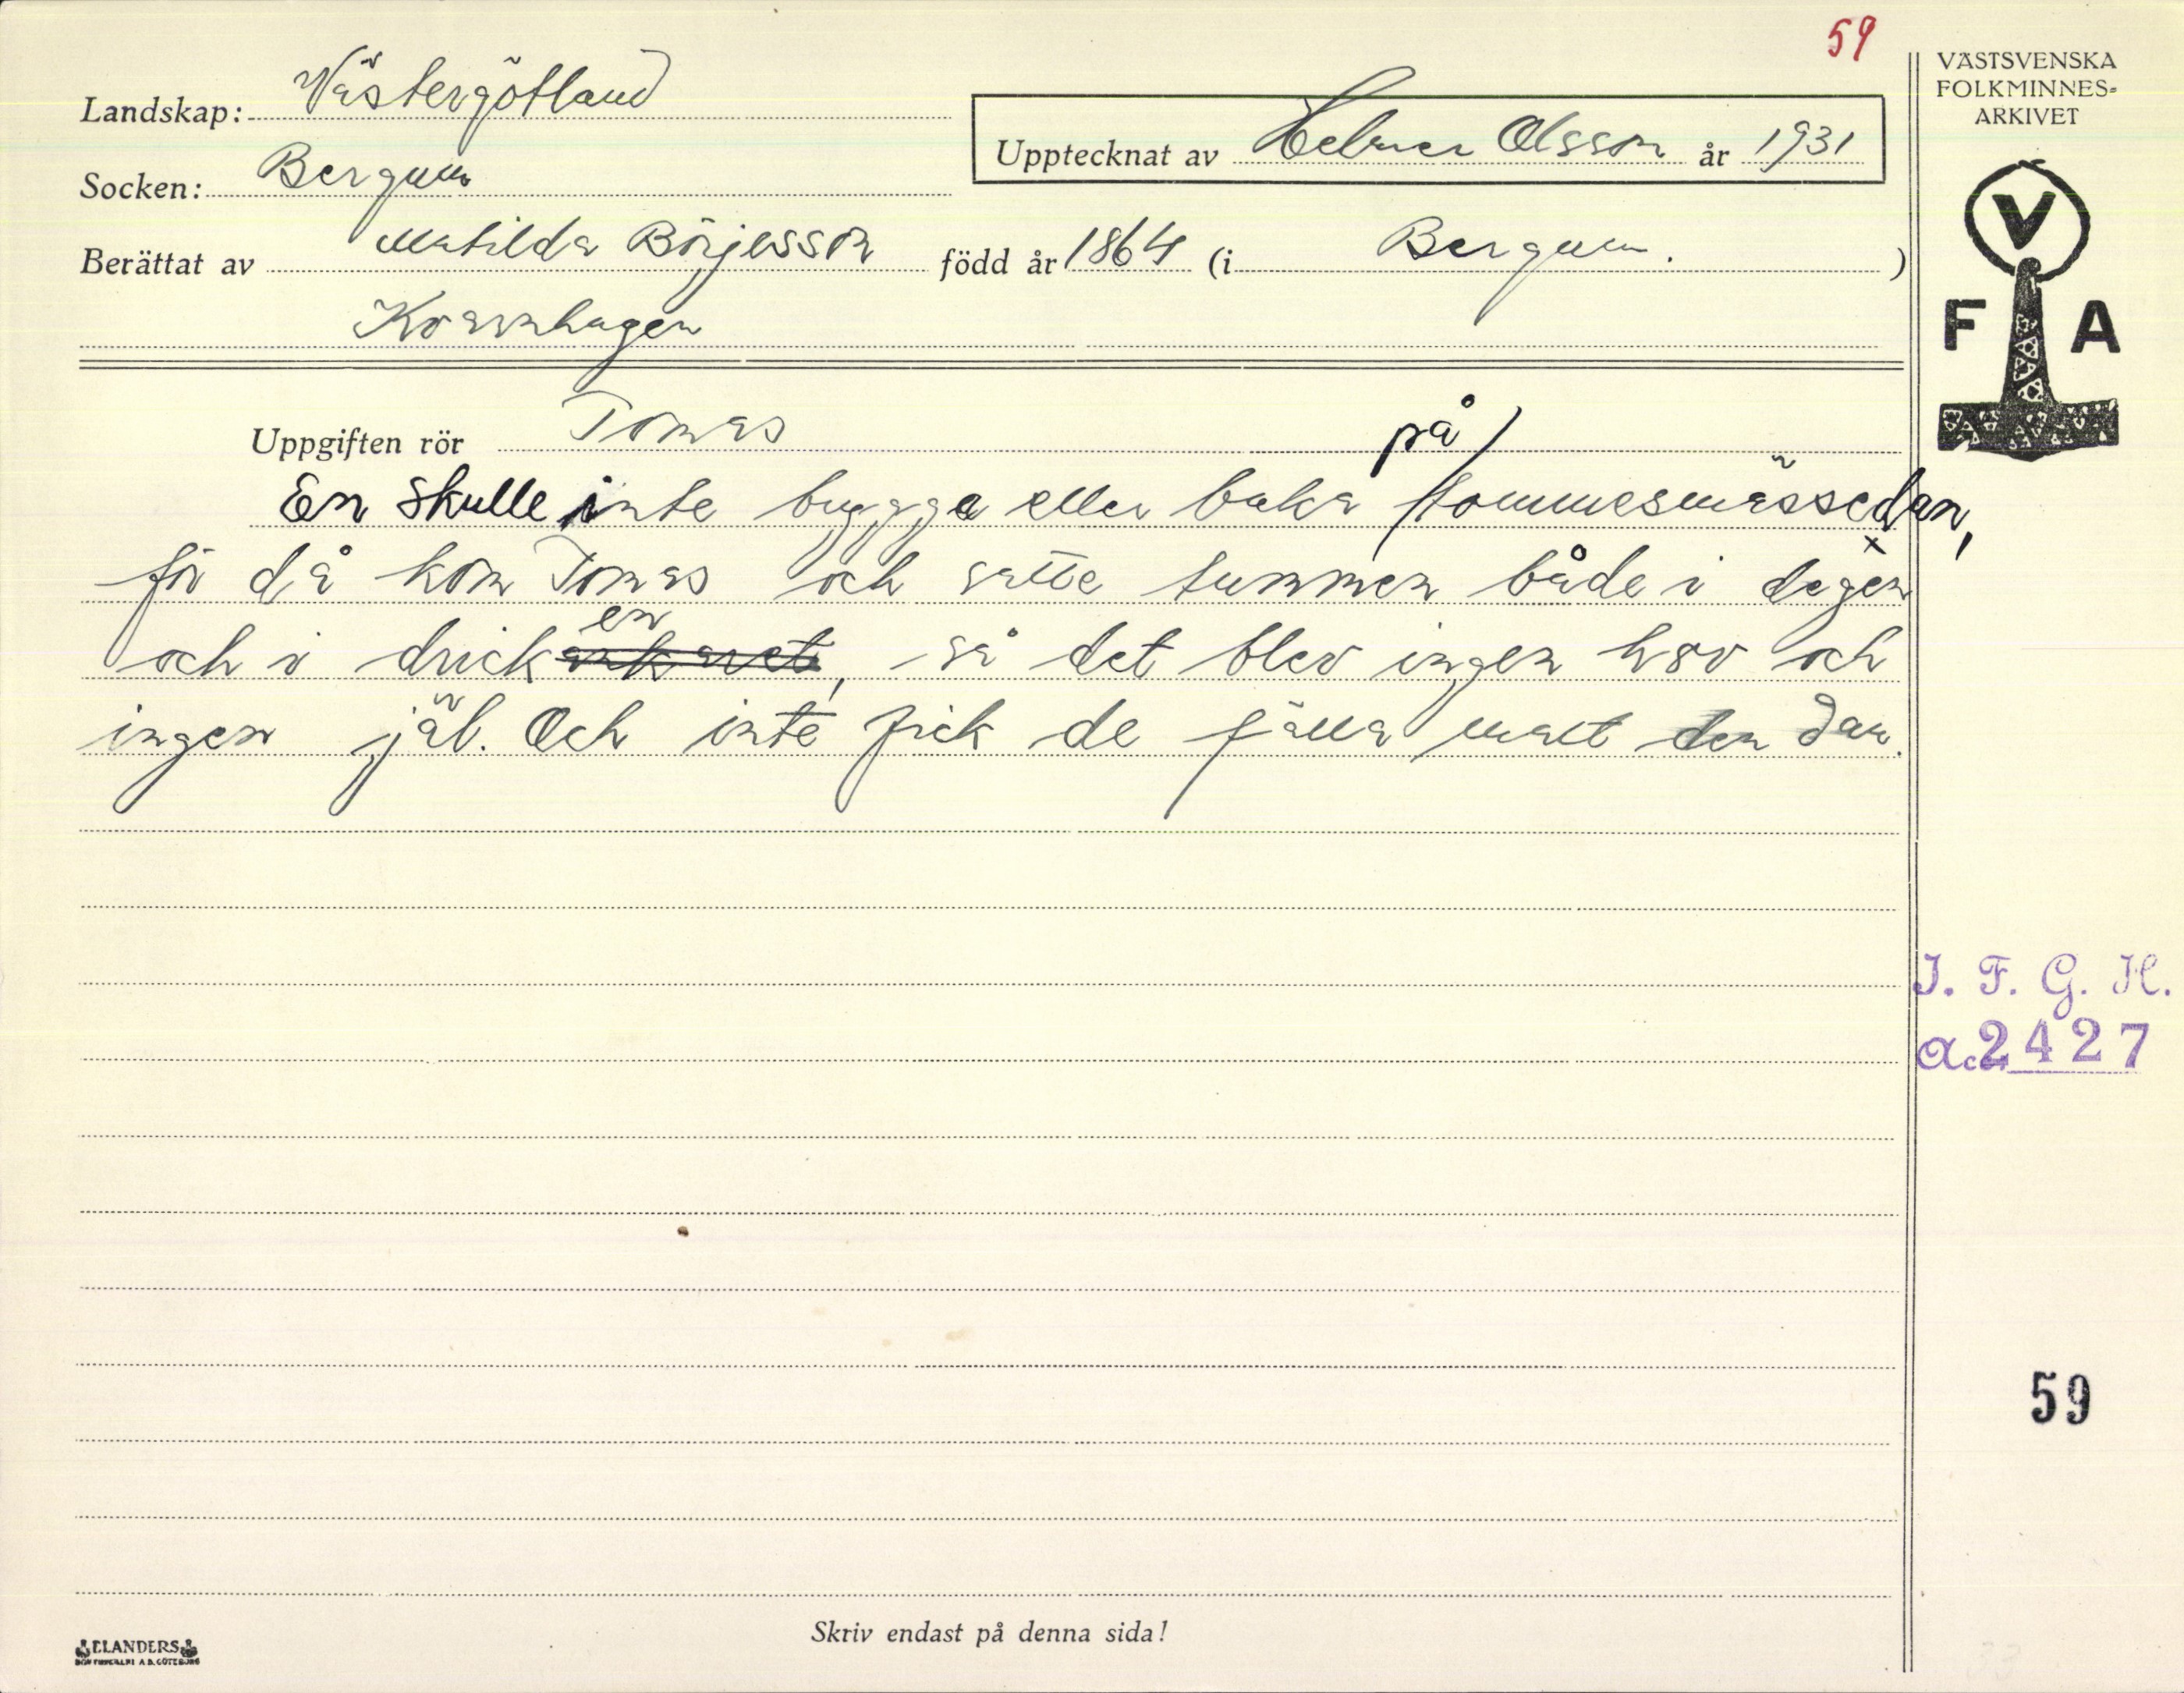 59
VÄSTSVENSKA
FOLKMINNES-
ARKIVET
Landskap: Västergötland
Upptecknat av Helmer Olsson år 1931
Socken: Bergum
Berättat av Matilda Börjesson född år 1864 (i Bergum. )
Kvarnhagen
V
F A
Uppgiften rör Tomas
på
En skulle inte bygga eller baka tommesmässedan,
för då kom Tomas och satte tummen både i degen
en
och i drickankaret, så det blev ingen hav och
ingen jäl. Och inte fick de fälla malt den dan.
I. F. G. H.
acc. 2427
59
Skriv endast på denna sida!
ELANDERS
BOKTRYCKERI A.B. GÖTEBORG